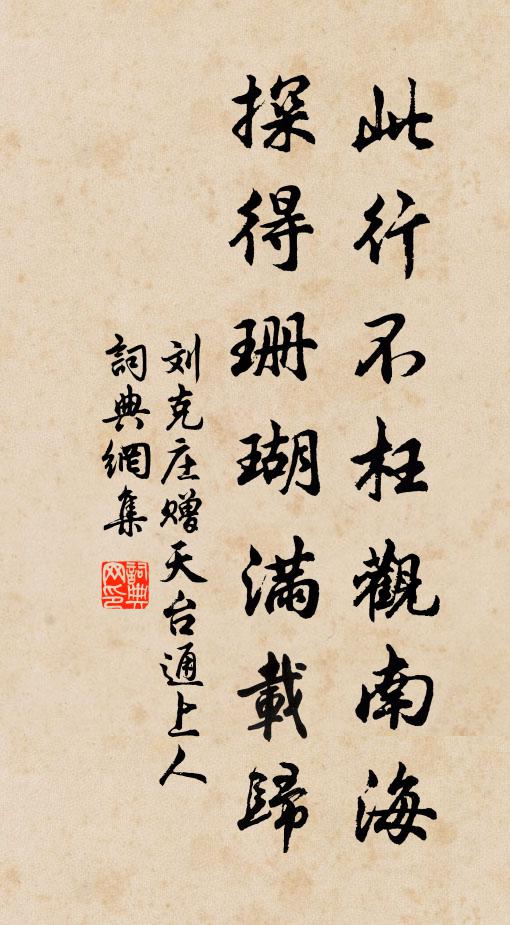 此行不枉觀南海
探得珊瑚滿載歸
刘克庄赠天台通上人
詞典網集
詞典网印